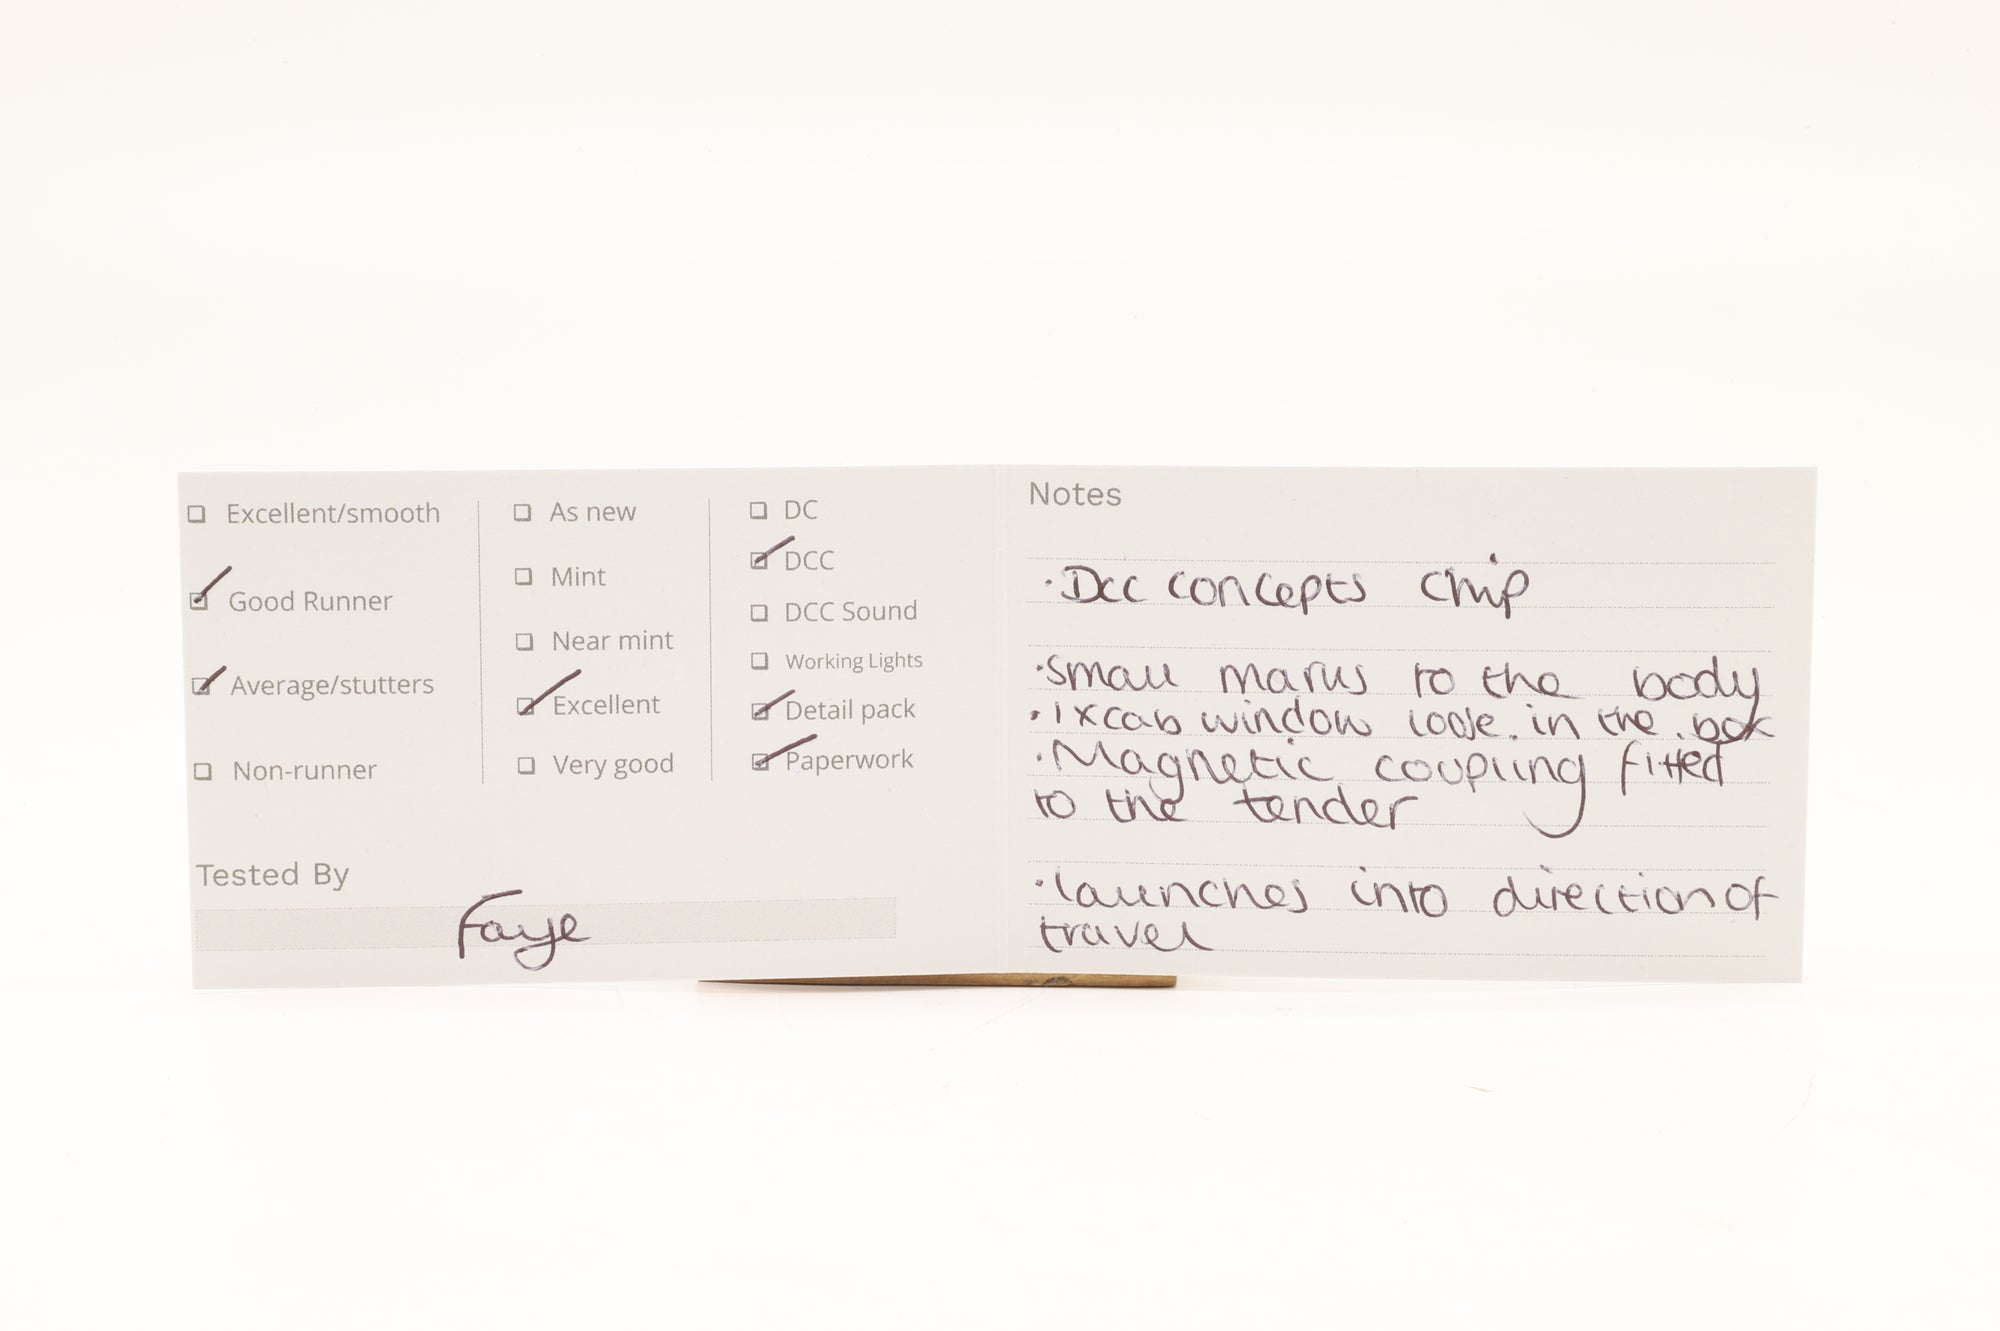 Excellent/smooth
Good Runner
Average/stutters
Non-runner
As new
Mint
Near mint
Excellent
Very good
DC
DCC
DCC Sound
Working Lights
Detail pack
Paperwork
Tested By
Faye
Notes
·Dcc concepts chip
·small marks to the body
·1xcab window loose in the box
·Magnetic coupling fitted
to the tender
·launches into direction of
travel